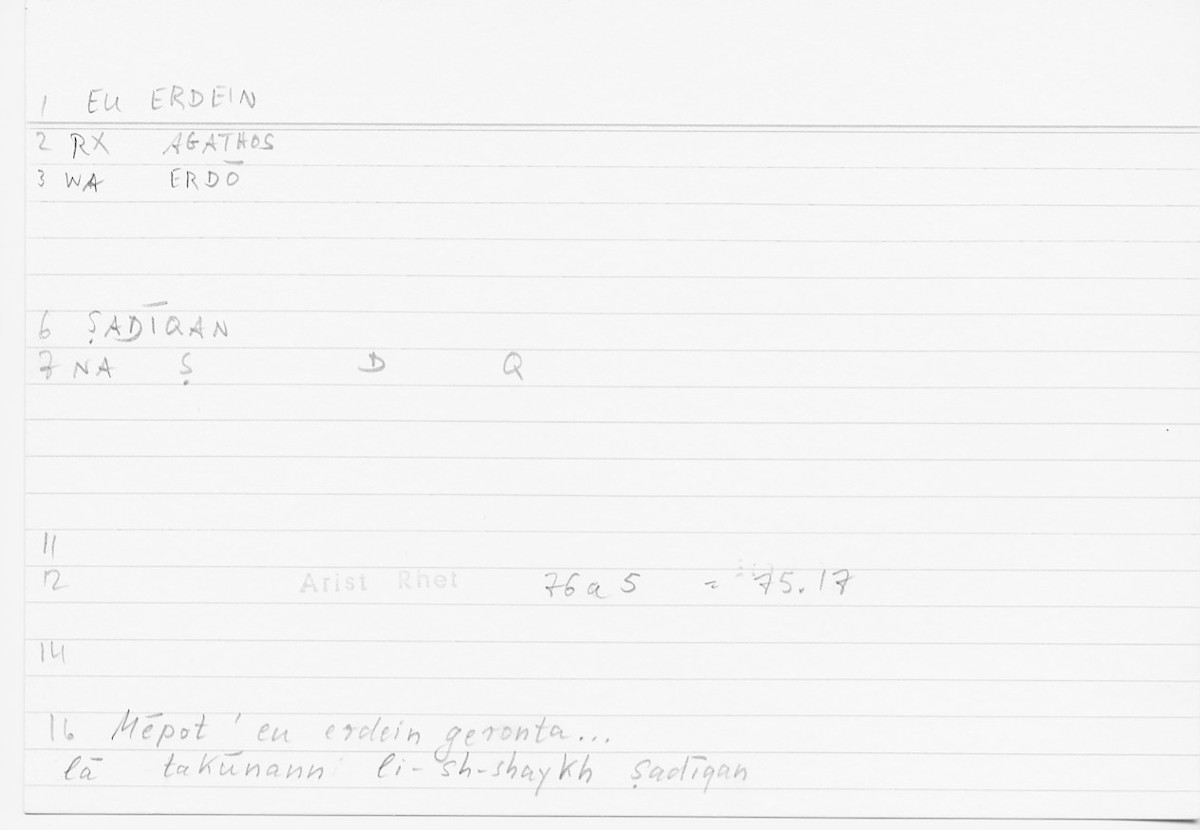 1 EU ERDEIN
2 RX AGATHOS
3 WA ERDŌ
6 ṢADĪQAN
7 NA Ṣ D Q
11
12 Arist Rhet 76a5 = 75.17
14
16 Mēpot' eu erdein geronta...
lā takūnann li-sh-shaykh ṣadīqan